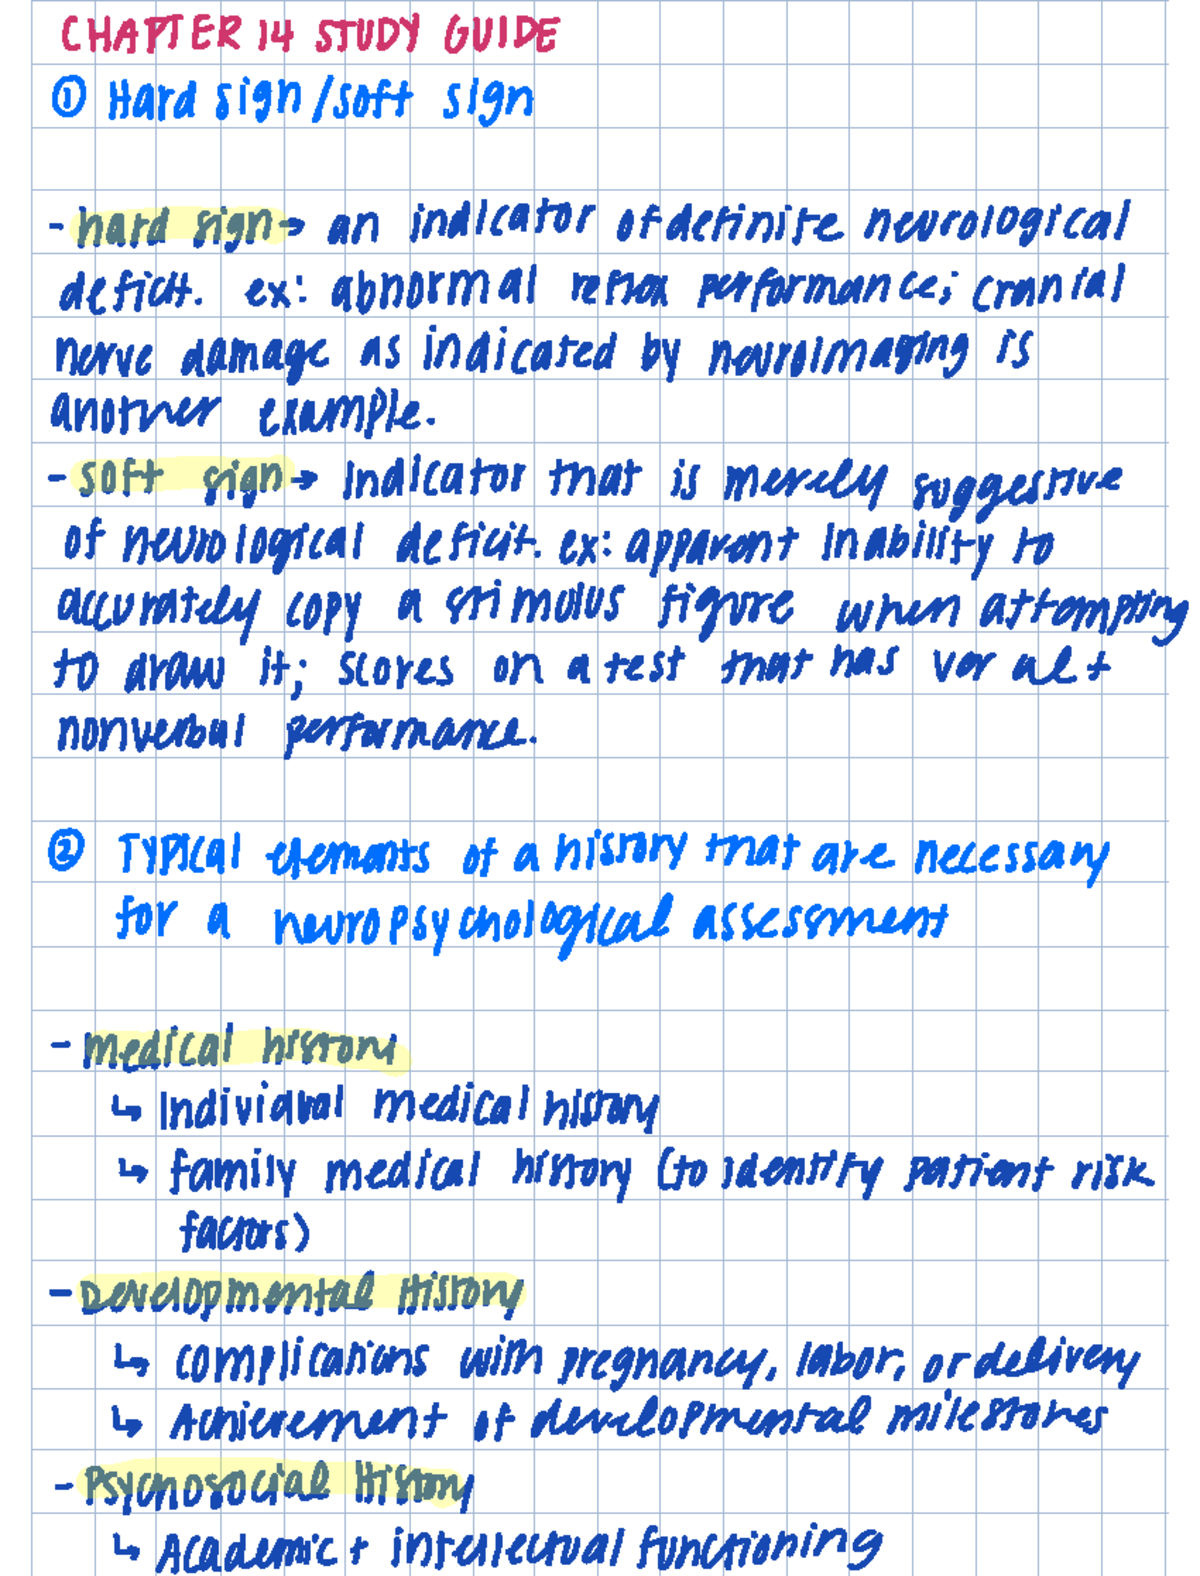 CHAPTER 14 STUDY GUIDE
① Hard sign/soft sign
- hard sign → an indicator of definite neurological
deficit. ex: abnormal reflex performance; cranial
nerve damage as indicated by neuroimaging is
another example.
- soft sign → Indicator that is merely suggestive
of neurological deficit. ex: apparent inability to
accurately copy a stimulus figure when attempting
to draw it; scores on a test that has verbal +
nonverbal performance.
② Typical elements of a history that are necessary
for a neuropsychological assessment
- medical history
↳ Individual medical history
↳ family medical history (to identify patient risk
factors)
- Developmental History
↳ complications with pregnancy, labor, or delivery
↳ Achievement of developmental milestones
- Psychosocial History
↳ Academic + intellectual functioning